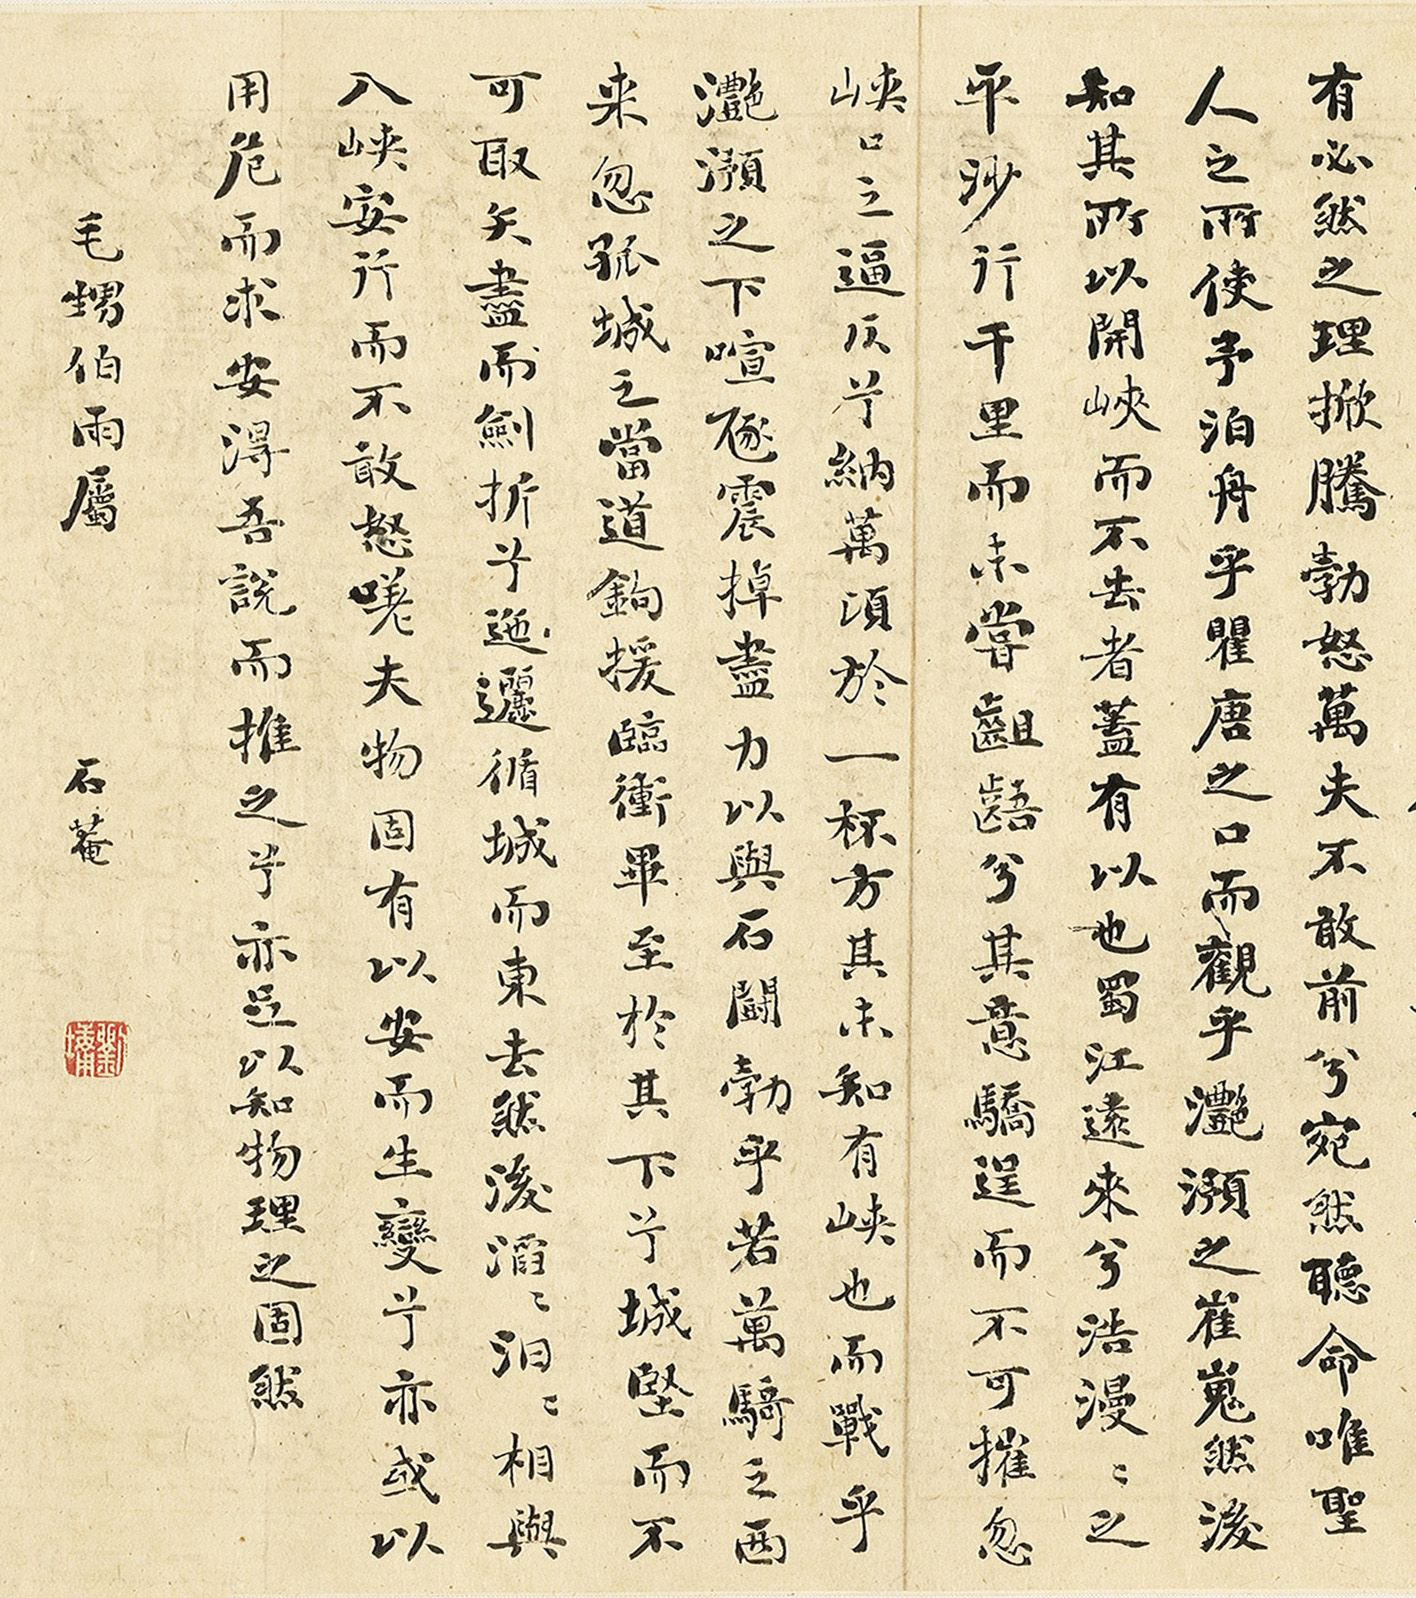 有必然之理掀騰勃怒萬夫不敢前兮宛然聽命唯聖
人之所使予泊舟乎瞿唐之口而觀乎灧澦之崔嵬然後
知其所以開峽而不去者蓋有以也蜀江遠來兮浩漫〻之
平沙行千里而未嘗齟齬兮其意驕逞而不可摧忽
峽口之逼仄兮納萬頃於一杯方其未知有峽也而戰乎
灧澦之下喧豗震掉盡力以與石鬪勃乎若萬騎之西
来忽孤城之當道鉤援臨衝畢至於其下兮城堅而不
可取矢盡而劍折兮迤邐循城而東去然後滔〻汨〻相與
入峽安行而不敢怒嗟夫物固有以安而生變兮亦或以
用危而求安得吾說而推之兮亦足以知物理之固然
毛甥伯雨屬 石菴
劉墉